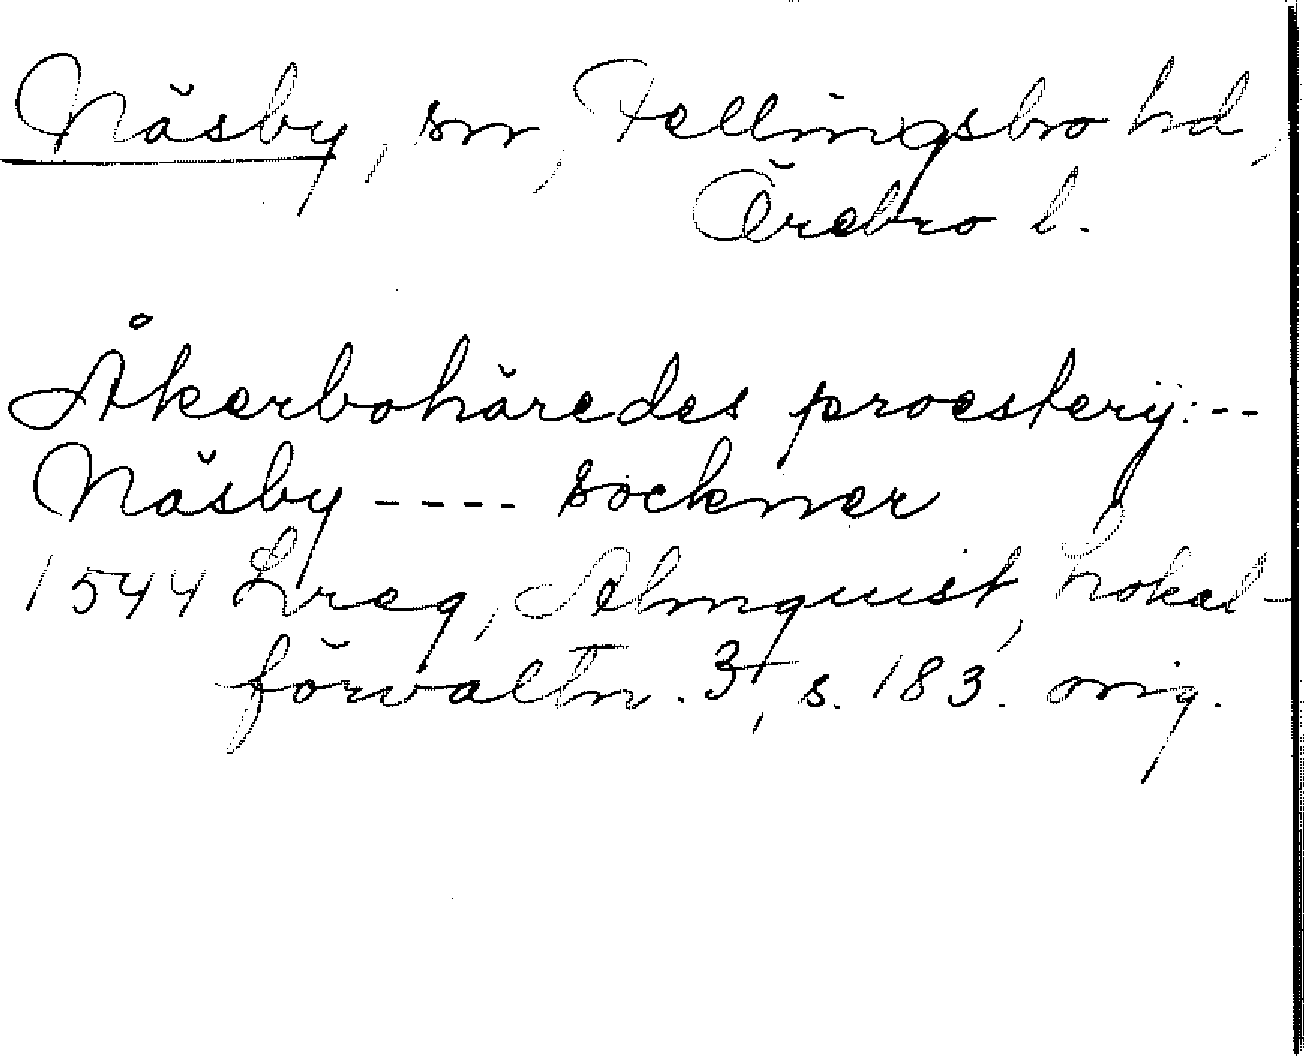 Näsby, sn, Fellingsbro hd,
Örebro l.
Åkerbohäredes proesterij:--
Näsby ---- sockner
1544 Lreg, Almquist, Lokal-
förvaltn. 3, s. 183. orig.